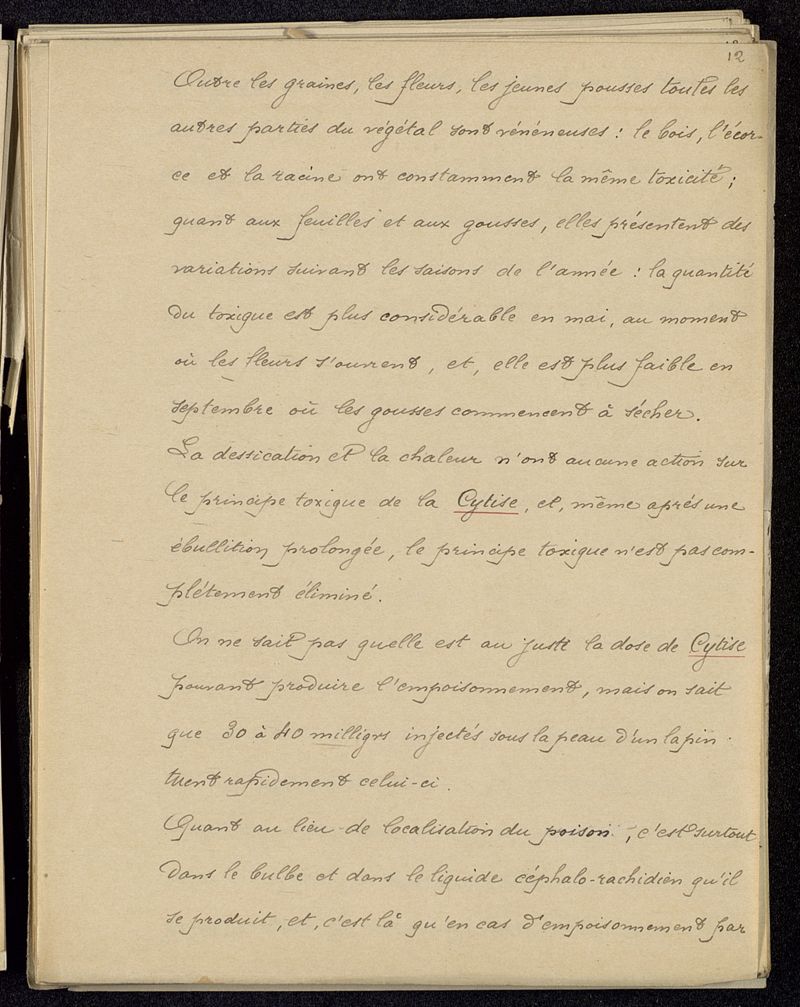 12
Outre les graines, les fleurs, les jeunes pousses toutes les
autres parties du végétal sont vénéneuses : le bois, l'écor-
ce et la racine ont constamment la même toxicité ;
quant aux feuilles et aux gousses, elles présentent des
variations suivant les saisons de l'année : la quantité
du toxique est plus considérable en mai, au moment
où les fleurs s'ouvrent, et, elle est plus faible en
septembre où les gousses commencent à sécher.
La dessication et la chaleur n'ont aucune action sur
le principe toxique de la Cytise, et, même après une
ébullition prolongée, le principe toxique n'est pas com-
plétement éliminé.
On ne sait pas quelle est au juste la dose de Cytise
pouvant produire l'empoisonnement, mais on sait
que 30 à 40 milligrs injectés sous la peau d'un lapin
tuent rapidement celui-ci.
Quant au lieu de localisation du poison, c'est surtout
dans le bulbe et dans le liquide céphalo-rachidien qu'il
se produit, et, c'est là qu'en cas d'empoisonnement par